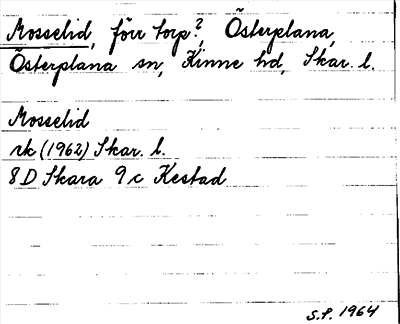 Mosselid, förr torp?, Österplana,
Österplana sn, Kinne hd, Skar. l.
Mosselid
rk (1962) Skar. l.
8 D Skara 9 c Kestad
S.P. 1964